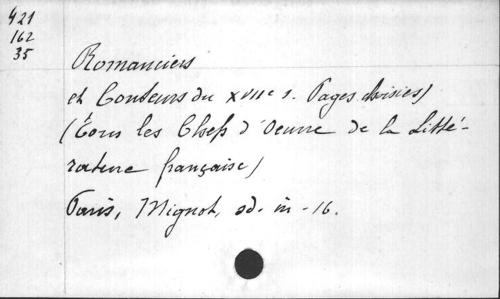 421
162
35
Romanciers
et Conteurs du XVIIe s. Pages choisies)
(Tous les Chefs d'Oeuvre de la Litté-
rature française)
Paris, Mignot, sd. in-16.